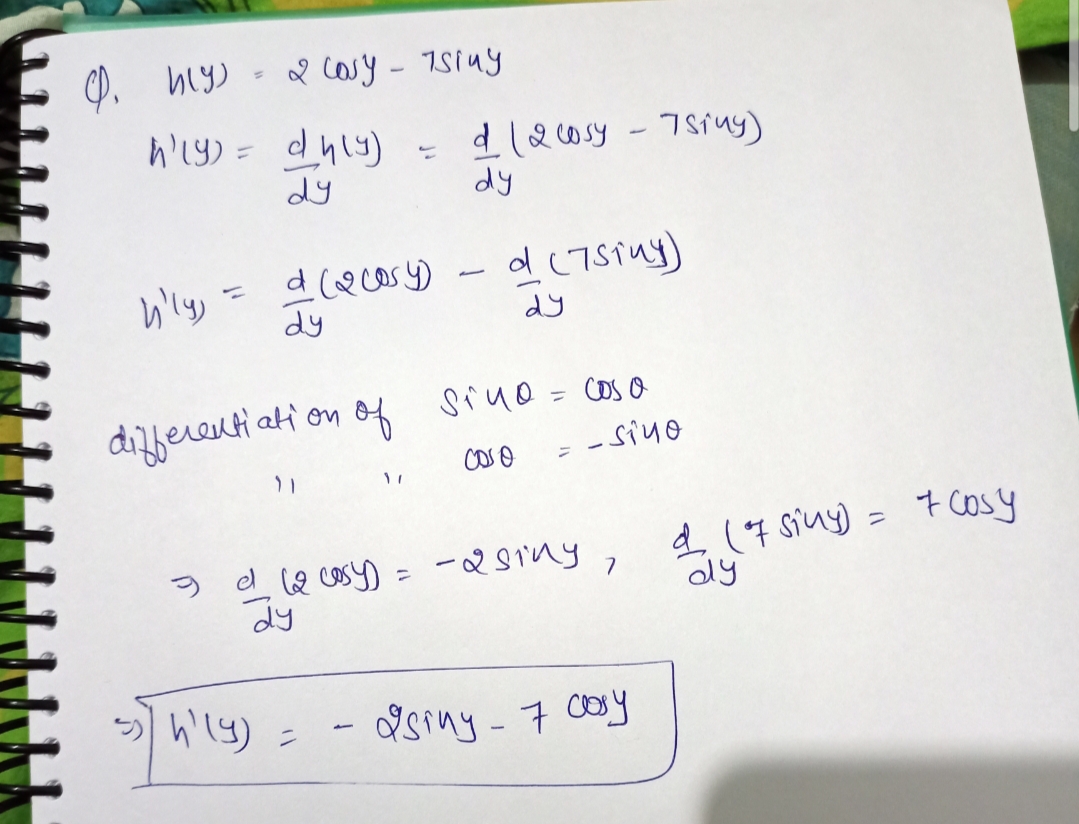 Q. h(y) = 2 cosy - 7siny
h'(y) = d/dy h(y) = d/dy (2 cosy - 7siny)
h'(y) = d/dy (2cosy) - d/dy (7siny)
differentiation of sinθ = cosθ
" " cosθ = -sinθ
⇒ d/dy (2 cosy) = -2siny, d/dy (7 siny) = 7 cosy
⇒ h'(y) = - 2siny - 7 cosy